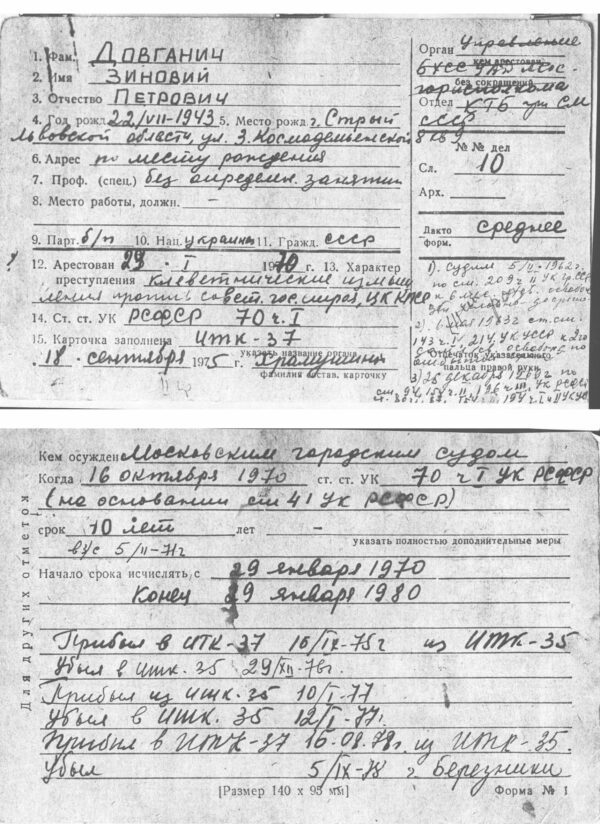 1. Фам. ДОВГАНИЧ
2. Имя ЗИНОВИЙ
3. Отчество ПЕТРОВИЧ
4. Год рожд. 22/VII-1943 5. Место рожд. г. Стрый
Львовской области, ул. З. Космодемьянской
6. Адрес по месту рождения
7. Проф. (спец.) без определен. занятий
8. Место работы, должн. –
9. Парт. б/п 10. Нац. украинец 11. Гражд. СССР
12. Арестован 29 · I 1970 г. 13. Характер
преступления клеветнические измыш
ления против совет. гос.
14. Ст. ст. УК РСФСР 70 ч. I
15. Карточка заполнена ИТК-37
указать название органа
18 · сентября 1975 г.
фамилия состав. карточку
Орган Управление
кем арестован
БХСС УВД Мос-
без сокращений
горисполкома
Отдел КГБ при СМ
СССР
№ № дел
Сл. 10
Арх.
Дакто
форм. среднее
1). Судим 5/II-1962г.
по ст. 209 ч II УК
2). 6 мая 1963г от. ст.
143 ч. I, 214 УК УССР к 2го
Отпечаток указательного
пальца правой руки
3) 26 декабря 1964г по
Кем осужден Московским городским судом
Когда 16 октября 1970 ст. ст. УК 70 ч I УК РСФСР
(на основании ст 41 УК РСФСР)
срок 10 лет лет –
указать полностью дополнительные меры
в/с 5/II-71г
Начало срока исчислять с 29 января 1970
Конец 29 января 1980
Для других отметок
Прибыл в ИТК-37 16/IX-75г из ИТК-35
Убыл в итк. 35 29/XII-76г.
Прибыл из итк-35 10/I-77
Убыл в ИТК. 35 12/I-77г.
Прибыл в ИТК-37 16.08.78г. из ИТК-35.
Убыл 5/IX-78 г. Березники
[Размер 140 х 95 мм] Форма № 1